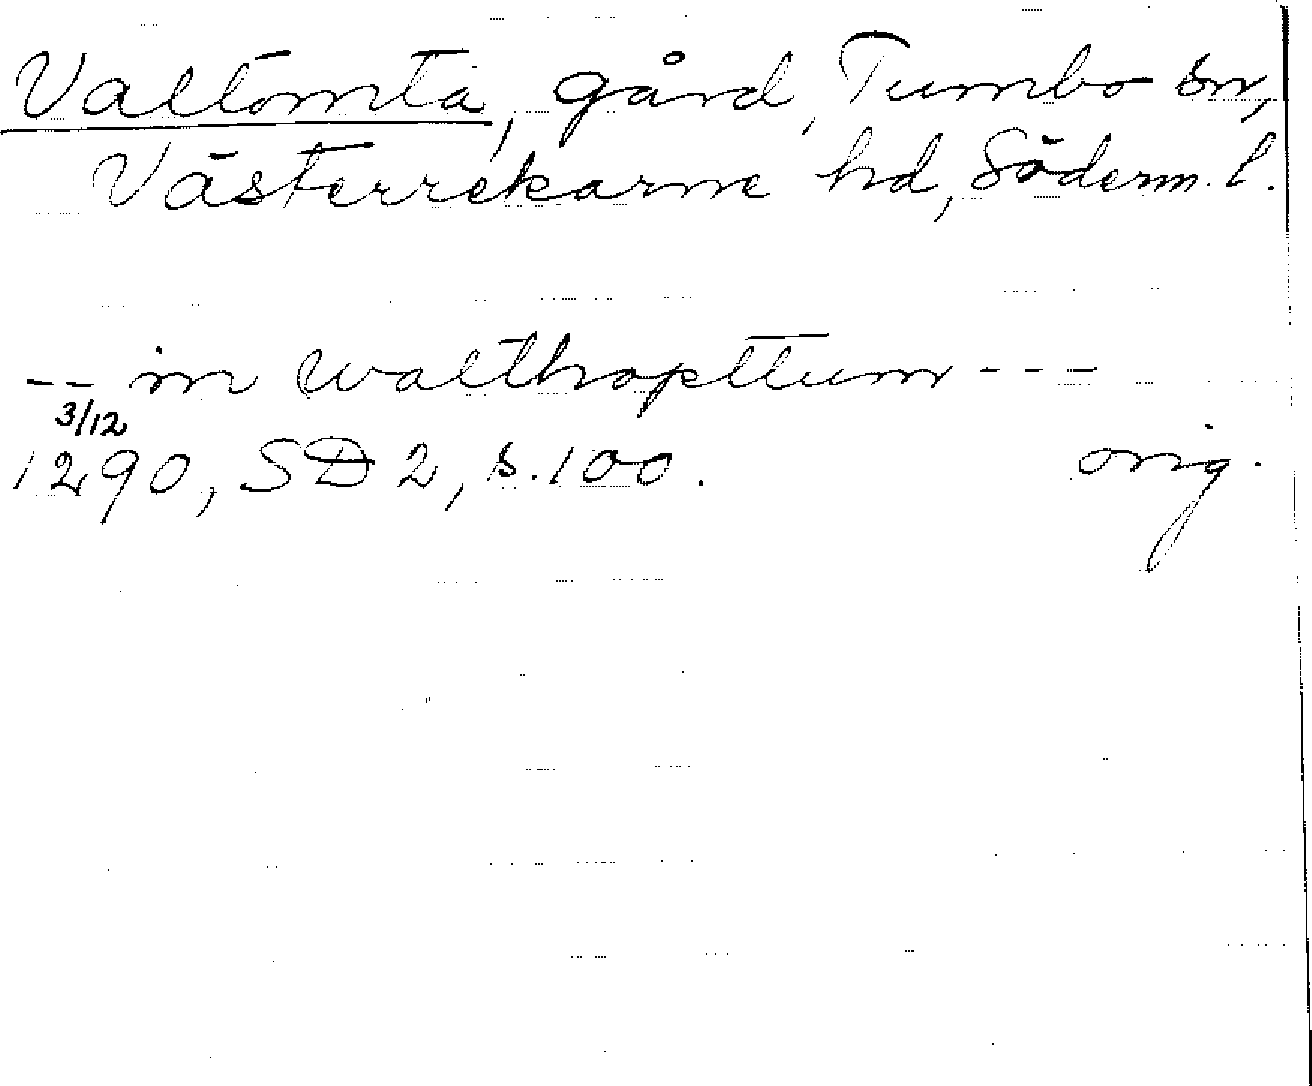 Valtomta, gård, Tumbo sn,
Västerrekarne hd, Söderm. l.
-- in walthopttum ---
3/12
1290, SD 2, s. 100. orig.